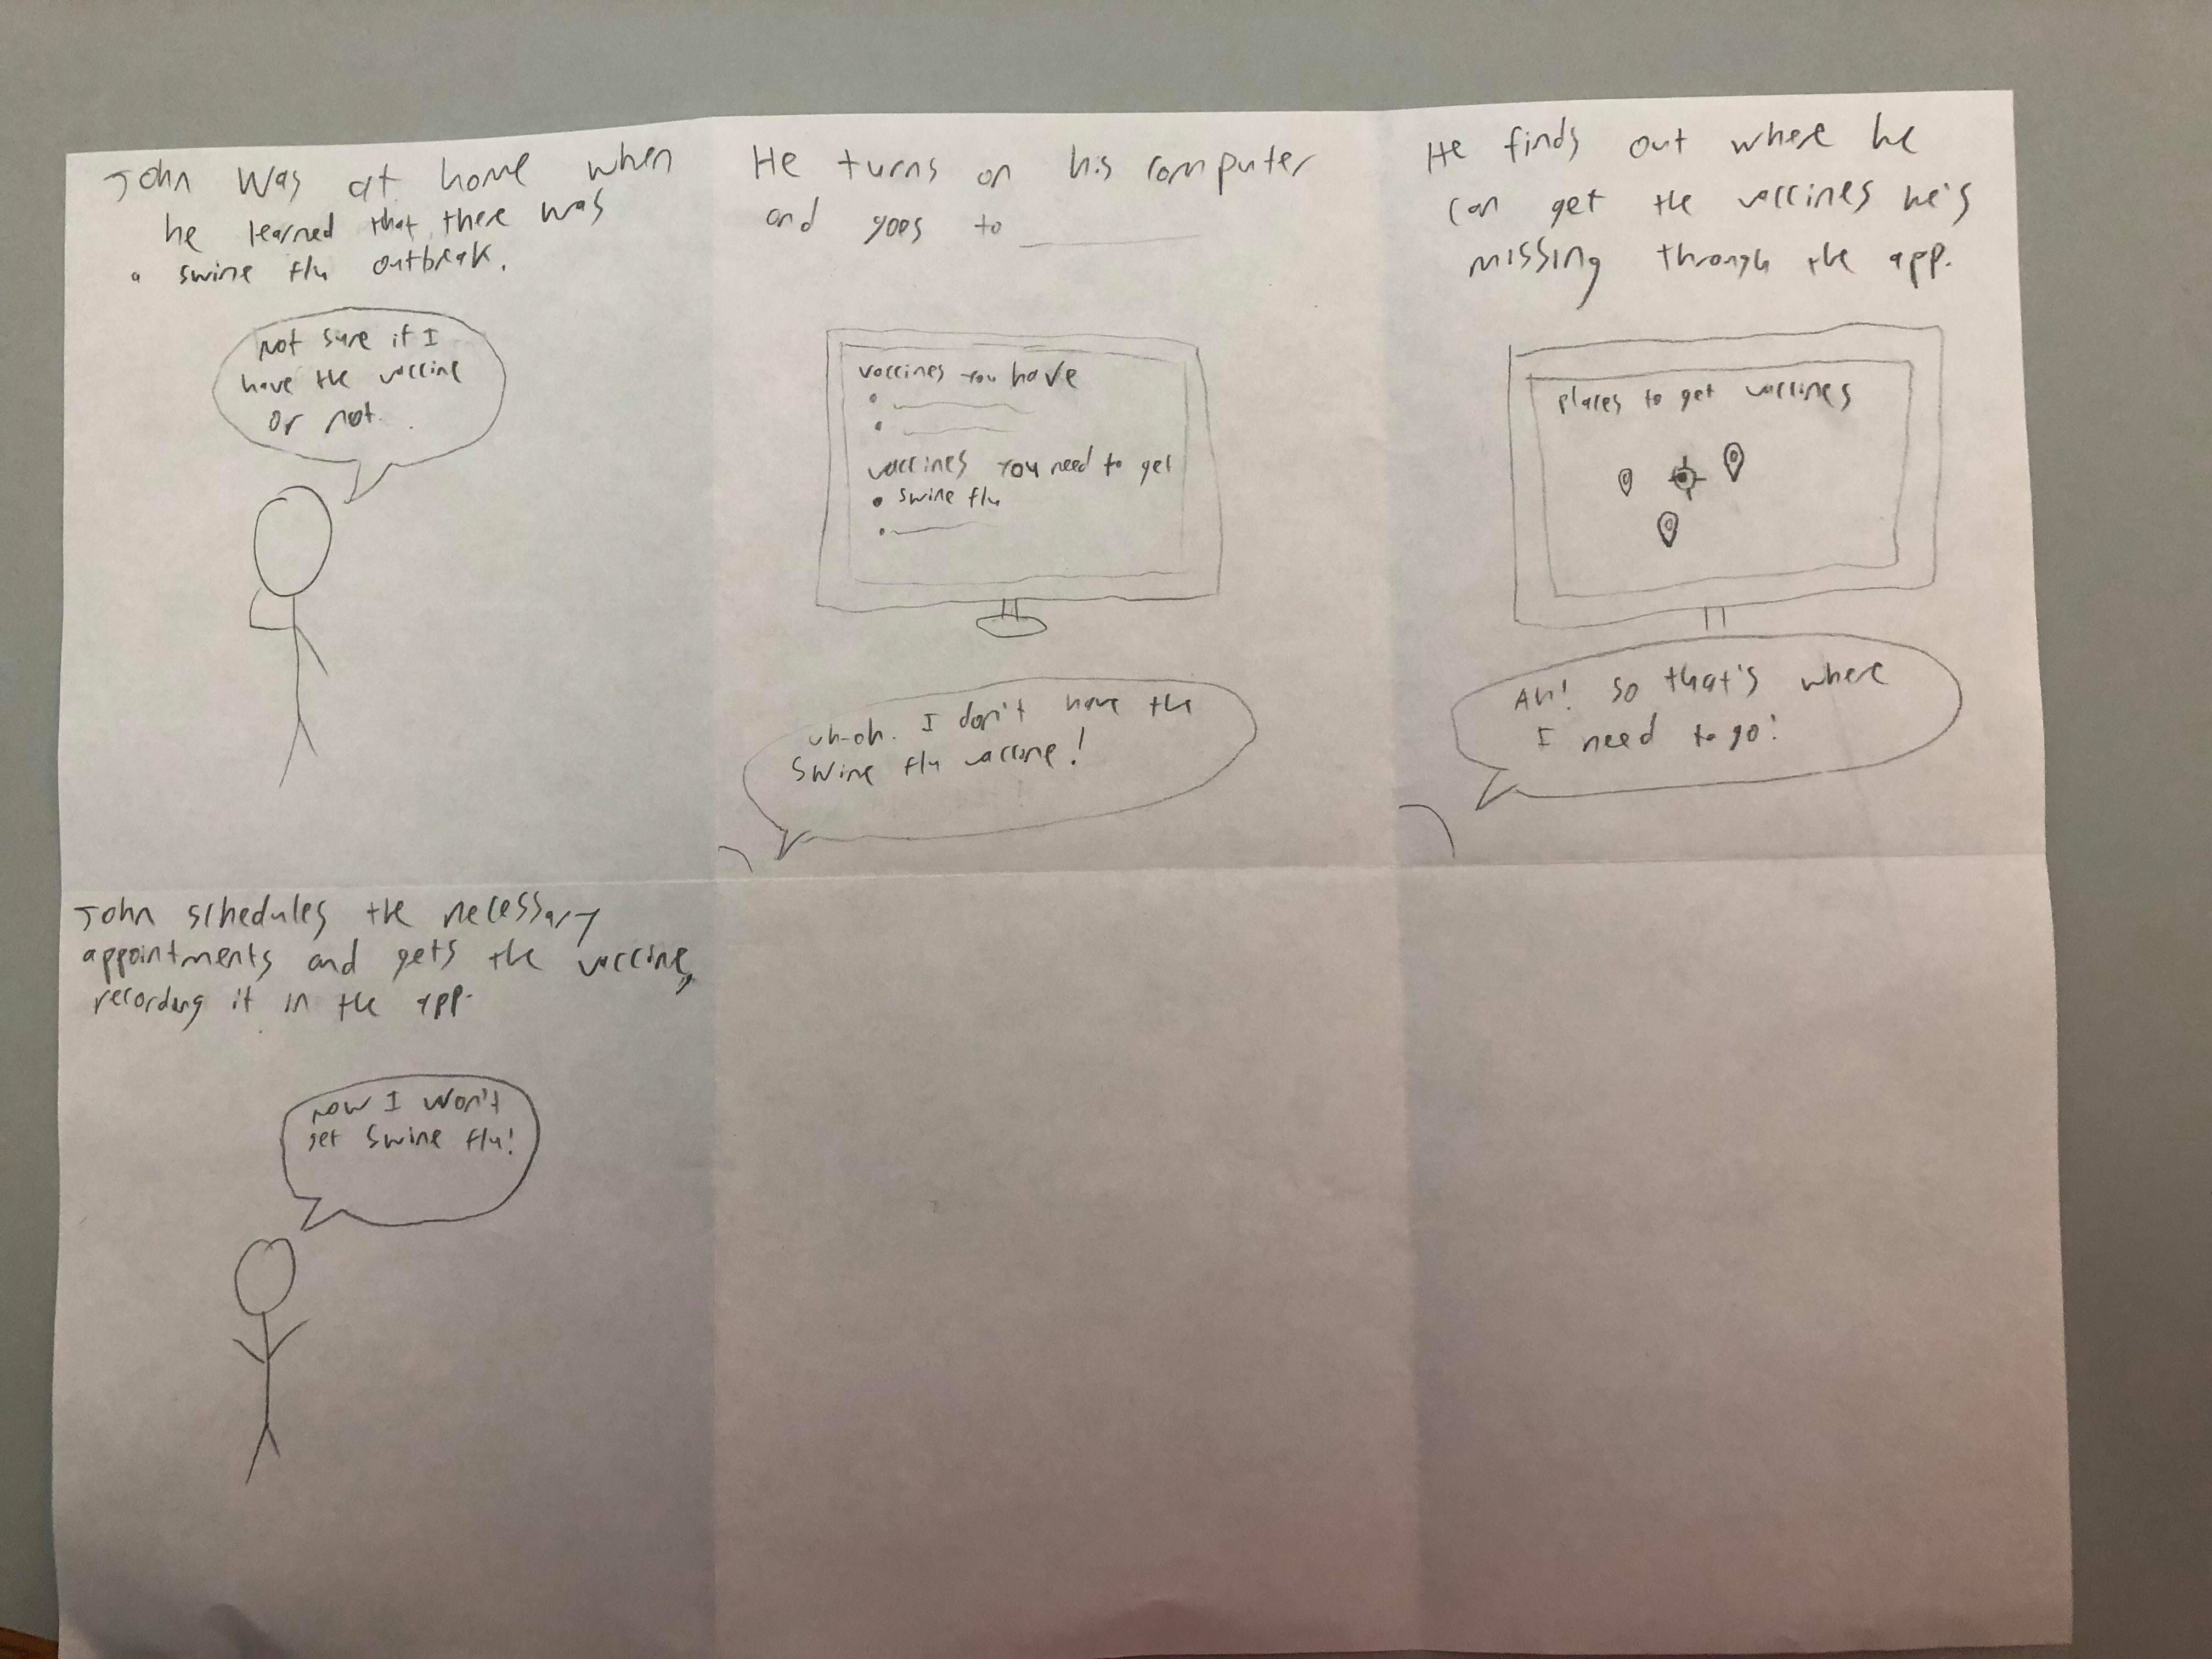 John was at home when
he learned that there was
a swine flu outbreak.
Not sure if I
have the vaccine
or not.
He turns on his computer
and goes to
vaccines you have
vaccines you need to get
swine flu
uh-oh. I don't have the
swine flu vaccine!
He finds out where he
can get the vaccines he's
missing through the app.
places to get vaccines
Ah! so that's where
I need to go!
John schedules the necessary
appointments and gets the vaccine,
recording it in the app.
now I won't
get swine flu!